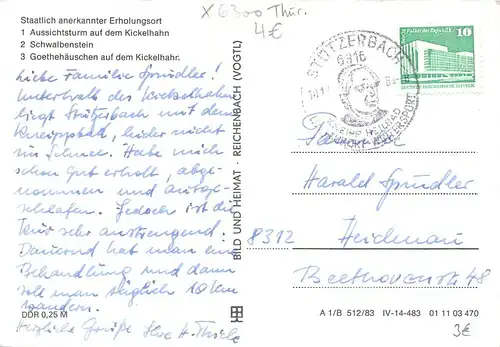 Staatlich anerkannter Erholungsort
1 Aussichtsturm auf dem Kickelhahn
2 Schwalbenstein
3 Goethehäuschen auf dem Kickelhahn.
x 6300 Thür.
4€
Liebe Familie Spindler!
Unterhalb des Kickelhahn
liegt Stützerbach mit dem
Kneippbad, leider nicht
im Schnee. Habe mich
schon gut erholt, abge-
nommen und ausge-
schlafen. Jedoch ist die
Kur sehr anstrengend.
Dauernd hat man eine
Behandlung und dann
soll man täglich 10 km
wandern.
Herzliche Grüße Ihre H. Thiele
DDR 0,25 M
BILD UND HEIMAT · REICHENBACH (VOGTL)
STÜTZERBACH
6316
10
Familie
Harald Spindler
8312 Heidenau
Beethovenstr. 48
A 1/B 512/83 IV-14-483 01 11 03 470
3€